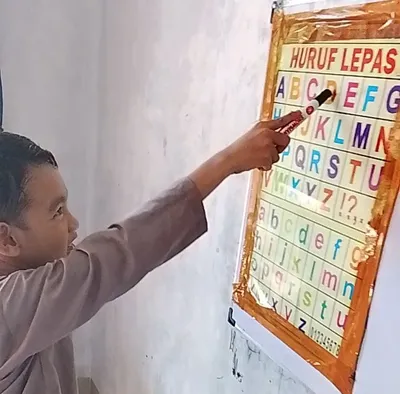 HURUF LEPAS
A B C D E F G
H J K L M N
P Q R S T U
W X Y Z ! ? ,
a b c d e f g
h i j k l m n
o p q r s t u
v w x y z 0123456789